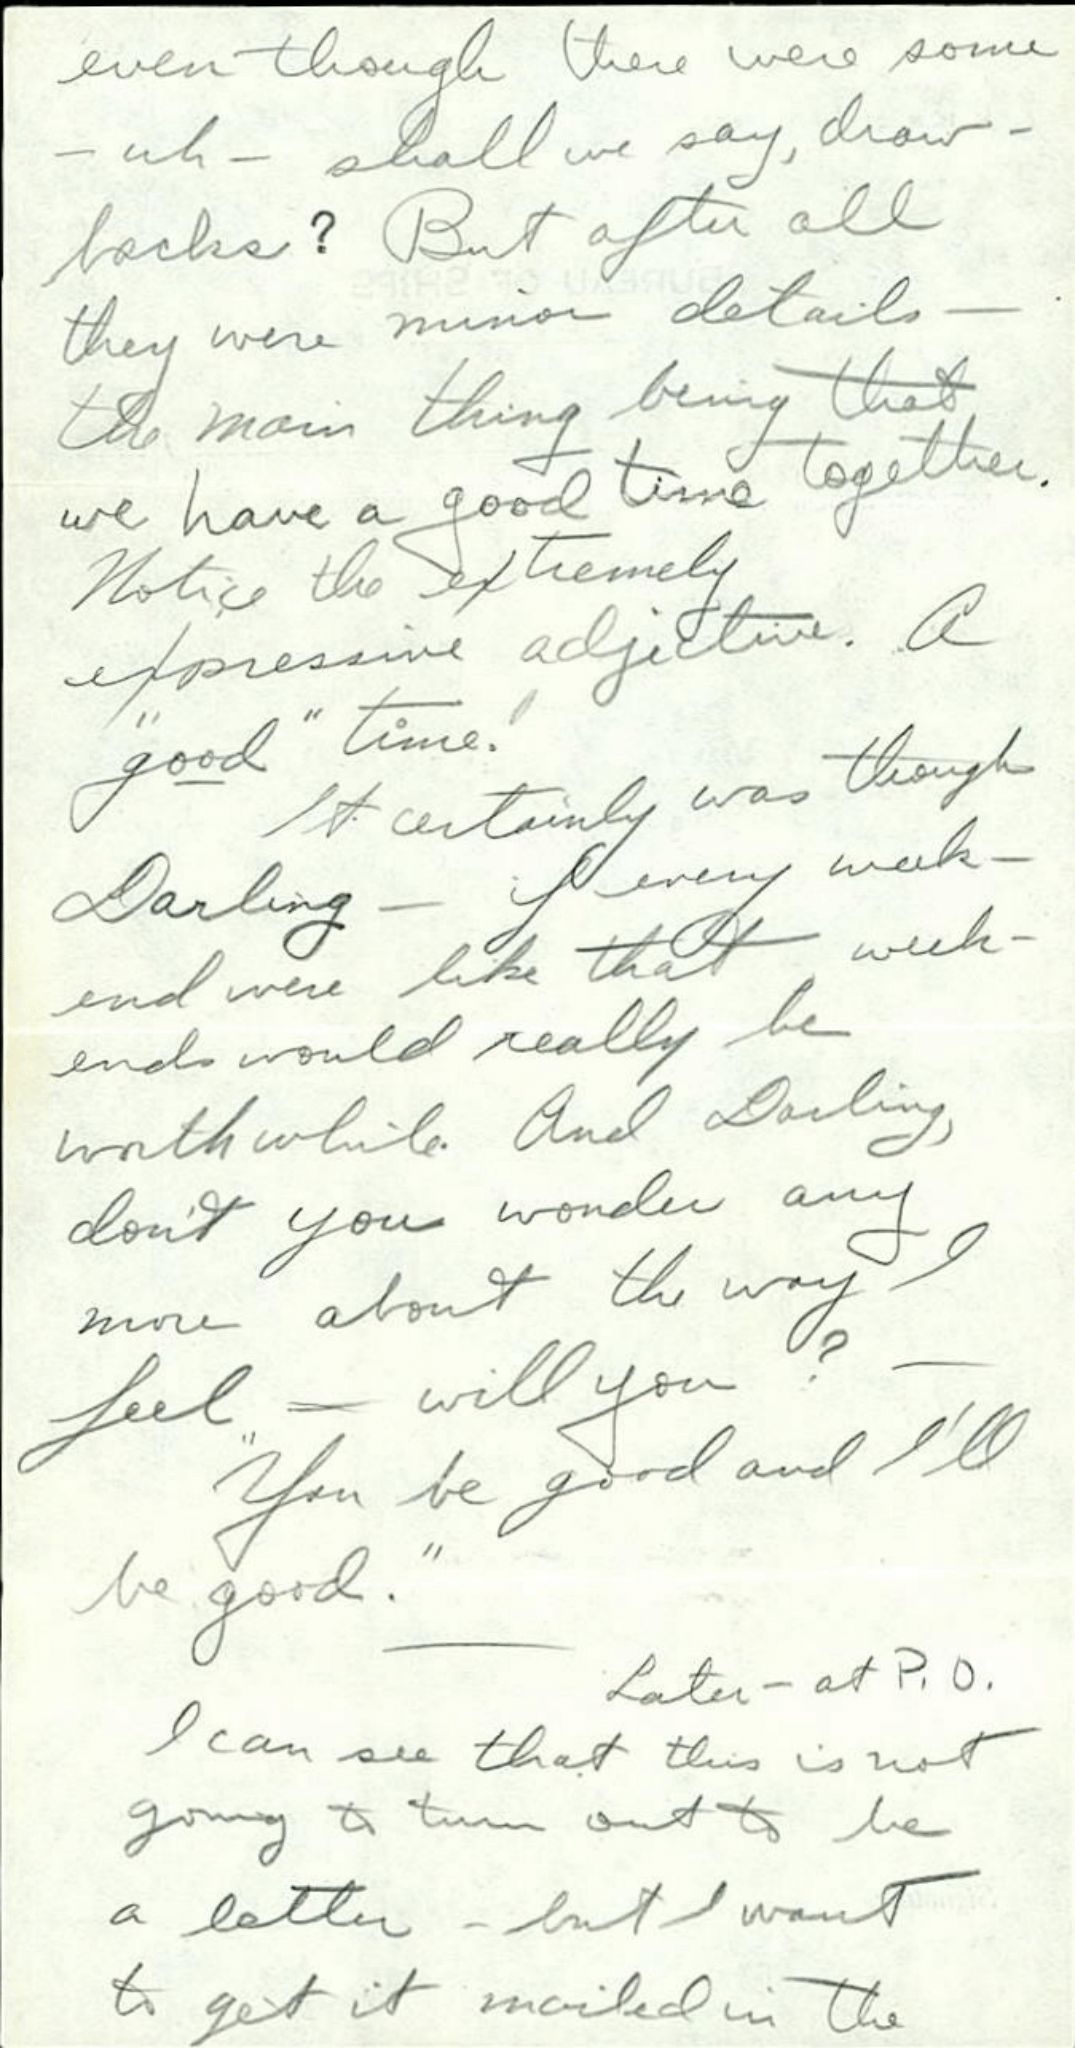 even though there were some
- uh - shall we say, draw-
backs? But after all
BUREAU OF SHIPS
they were minor details —
the main thing being that
we have a good time together.
Notice the extremely
expressive adjective. A
"good" time!
It certainly was though
Darling — if every week-
end were like that week-
ends would really be
worthwhile. And Darling,
don't you wonder any
more about the way I
feel — will you? —
"You be good and I'll
be good."
Later - at P.O.
I can see that this is not
going to turn out to be
a letter - but I want
to get it mailed in the